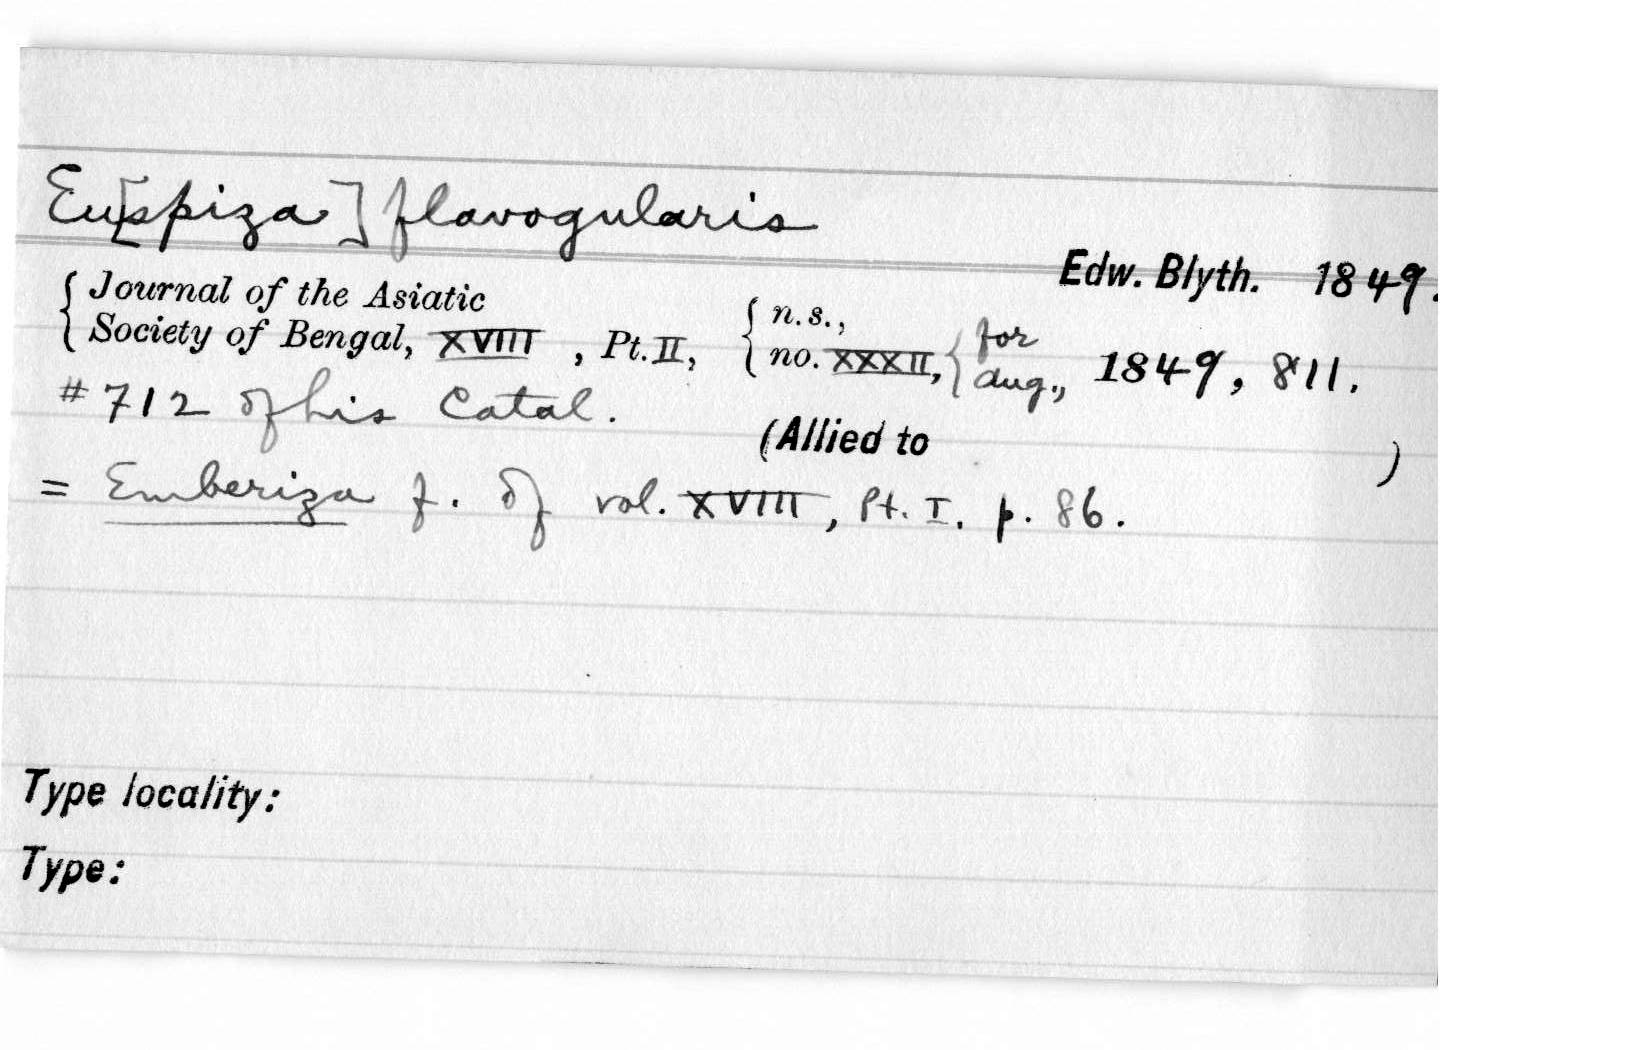 Eu[spiza] flavogularis
Edw. Blyth. 1849.
Journal of the Asiatic
Society of Bengal, XVIII, Pt. II, n.s., no. XXXII, for Aug., 1849, 811.
#712 of his Catal.
(Allied to )
= Emberiza f. of vol. XVIII, Pt. I. p. 86.
Type locality:
Type: